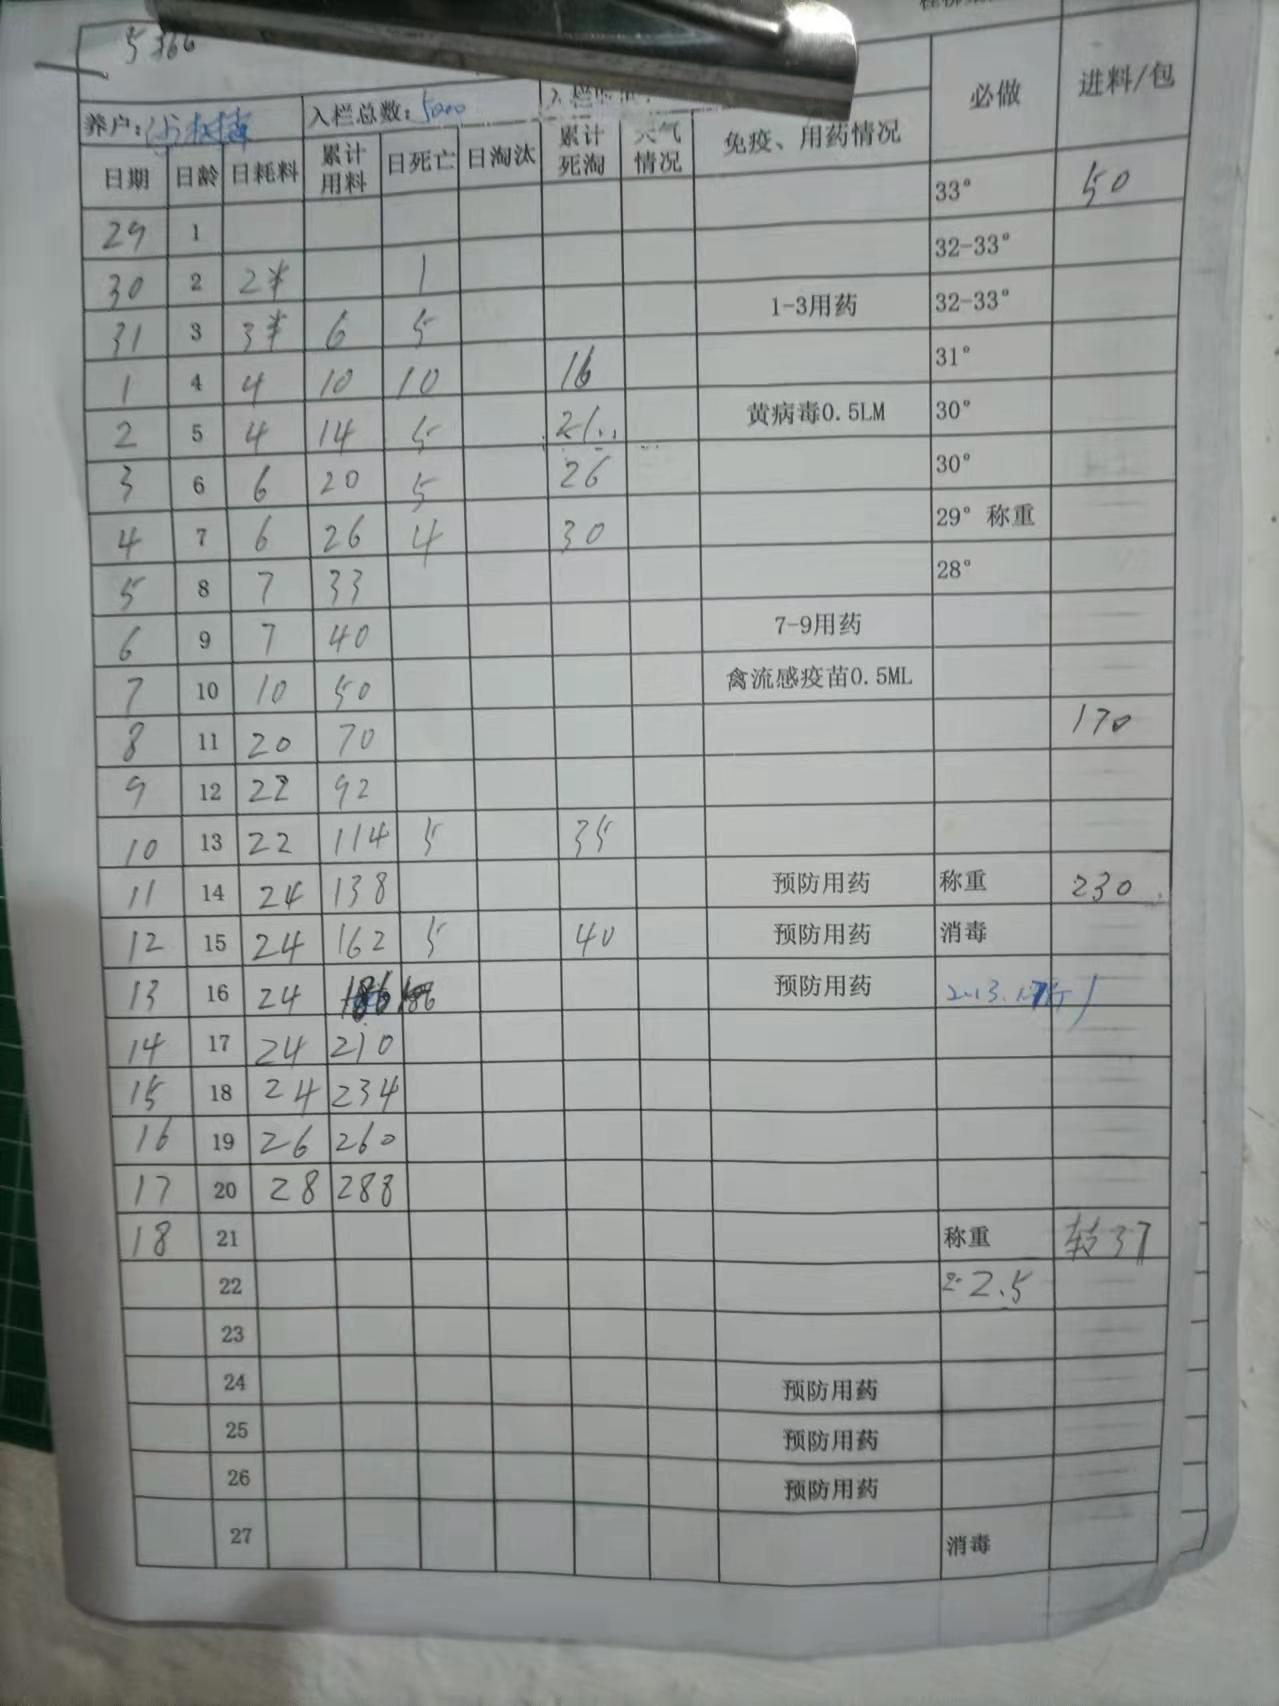 5366
养户: 入栏总数:5000
日期 日龄 日耗料 累计用料 日死亡 日淘汰 累计死淘 天气情况 免疫、用药情况 必做 进料/包
29 1 33° 50
30 2 2 1 32-33°
31 3 3 6 5 1-3用药 32-33°
1 4 4 10 10 16 31°
2 5 4 14 5 21 黄病毒0.5LM 30°
3 6 6 20 5 26 30°
4 7 6 26 4 30 29° 称重
5 8 7 33 28°
6 9 7 40 7-9用药
7 10 10 50 禽流感疫苗0.5ML
8 11 20 70 170
9 12 22 92
10 13 22 114 5 35
11 14 24 138 预防用药 称重 230
12 15 24 162 5 40 预防用药 消毒
13 16 24 186 186 预防用药
14 17 24 210
15 18 24 234
16 19 26 260
17 20 28 288
18 21 称重 转37
22 2.5
23
24 预防用药
25 预防用药
26 预防用药
27 消毒